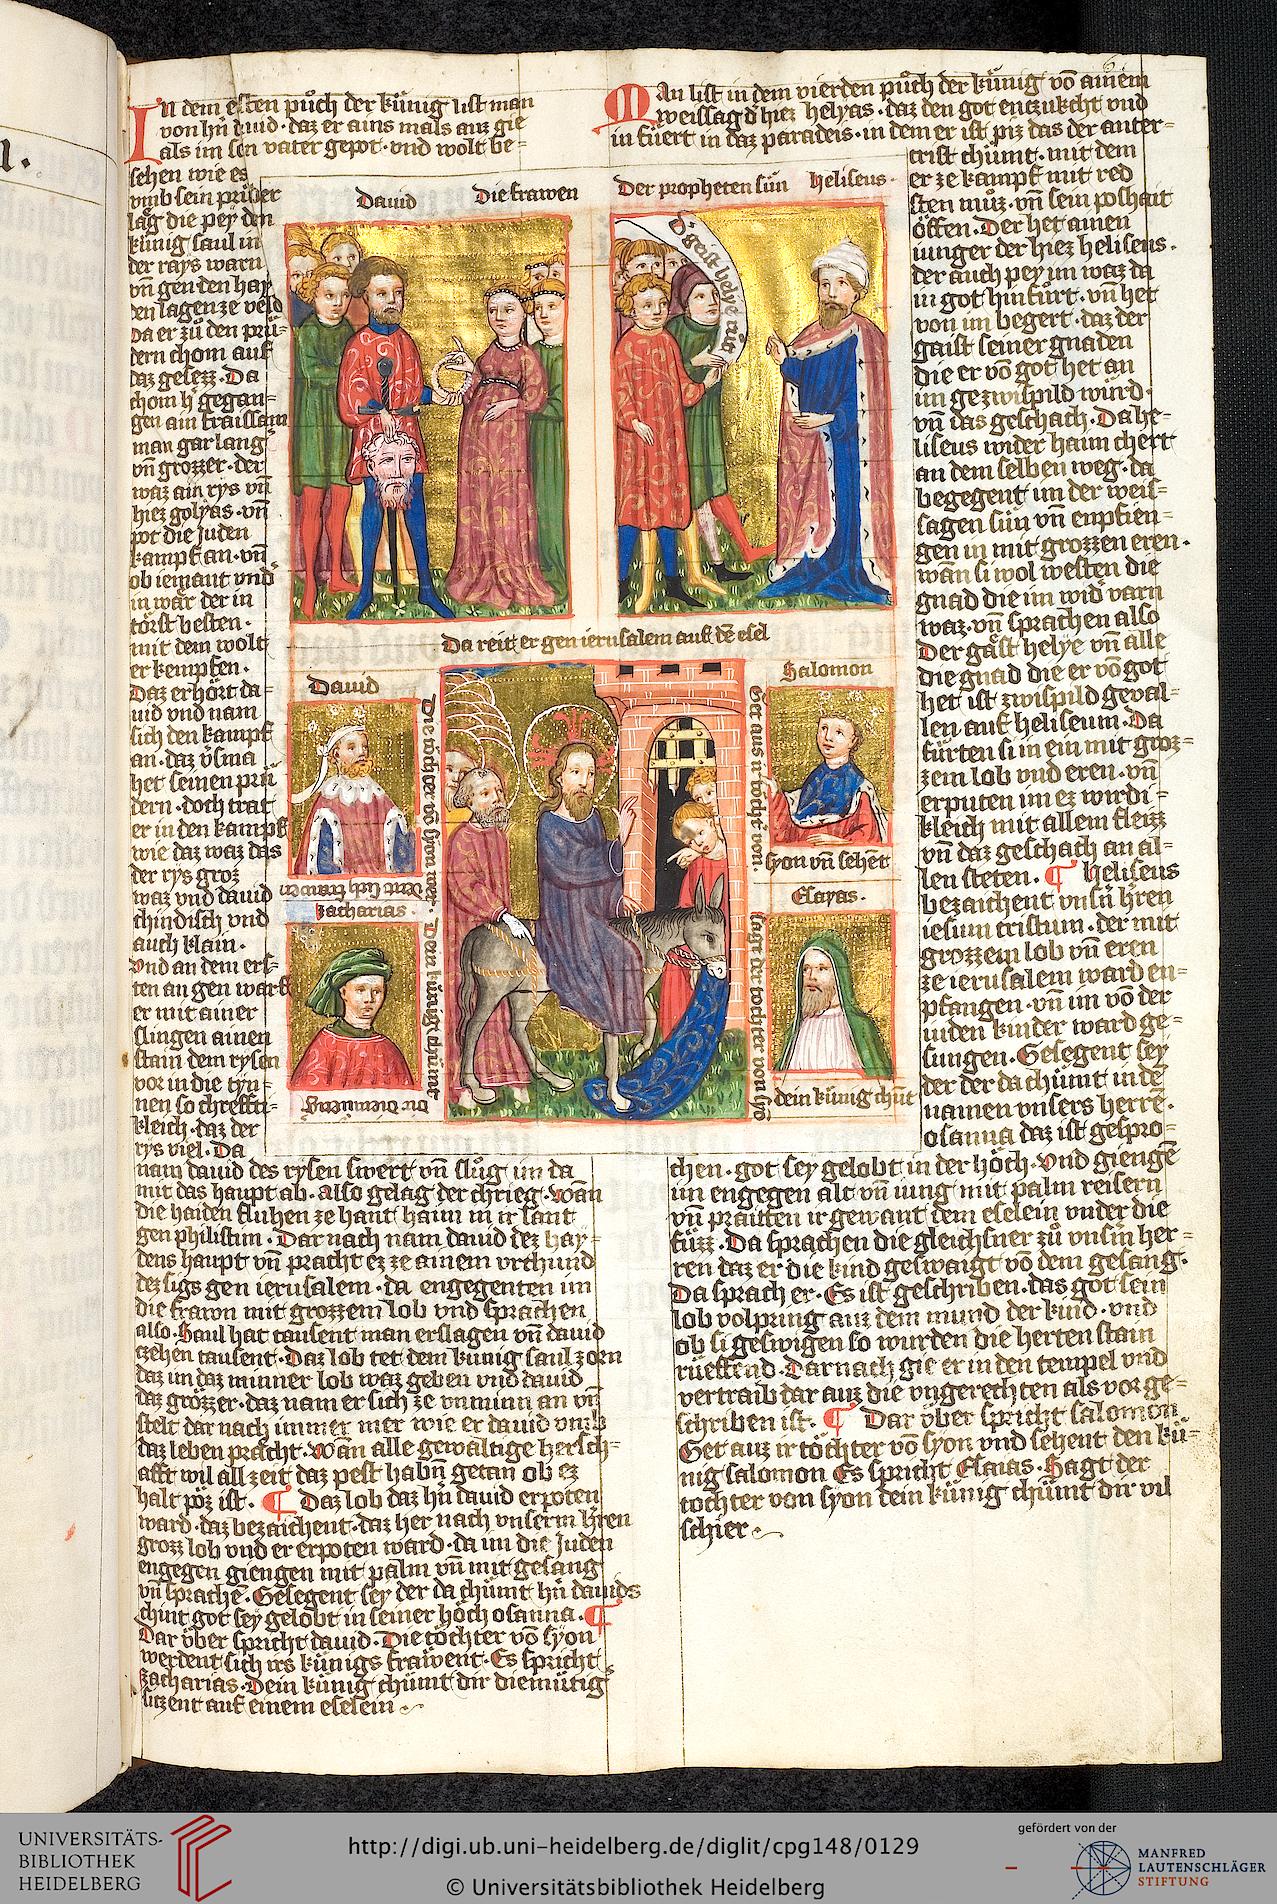 In dem ersten půch der künig list man
von hn dauid · daz er ains mals auz gie
als im sein vater gepot · vnd wolt be=
sehen wie es
vmb sein prüder
läg die pey dem
künig saul in
der rays warn
vñ gen den hay
den lagen ze veld
Da er zů den prü=
dern chom auf
daz gesezz · Da
chom h gegan=
gen ain fraissam
man gar lang
vñ grozzer · der
waz ain rys vñ
hiez golyas · vñ
pot die juden
kampf an · vñ
ob iemant vnd
in wär der in
törst besten ·
mit dem wolt
er kempfen ·
Daz erhört da=
uid vnd nam
sich den kampf
an · daz v̈sma
het seinen prü
dern · doch trat
er in den kampf
wie daz waz das
der rys groz
waz vnd dauid
chindisch vnd
auch klain ·
vnd an dem ers=
ten an gen warf
er mit ainer
slingen ainen
stain dem rysen
vor in die tyn=
nen so chreffti=
kleich · daz der
rys viel · Da
nam dauid des rysen swert vñ slůg im da
mit das haupt ab · also gelag der chrieg · wan
die haiden fluhen ze hant haim in ir lant
gen philistim · Dar nach nam dauid dez hay=
dens haupt vñ pracht ez ze ainem vrchund
dez sigs gen ierusalem · da engegenten im
die frawn mit grozzem lob vnd sprachen
also · Saul hat tausent man erslagen vñ dauid
czehen tausent · Daz lob tet dem künig saul zorn
daz im daz minner lob waz geben vnd dauid
daz grözzer · daz nam er sich ze vnminn an vñ
stelt dar nach immer mer wie er dauid vmb
daz leben pracht · wan alle gewaltige hersch=
afft wil all zeit daz pest habñ getan ob ez
halt pöz ist · ¶ Daz lob daz hñ dauid erpoten
ward · daz bezaichent · daz her nach vnserm hren
groz lob vnd er erpoten ward · da im die Juden
engegen giengen mit palm vñ mit gesang
vñ sprachē · Gesegent sey der da chümt hñ dauids
chint got sey gelobt in seiner höch osanna · ¶
Dar über spricht dauid · Die töchter vō syon
werdent sich irs künigs fräwent · Es spricht
zacharias · Dein künig chümt dir diemütig
sitzent auf einem eselein
Man list in dem vierden půch der künig vō ainem
weissag d hiez helyas · daz den got enczukcht vnd
in fuert in daz paradeis · in dem er ist piz das der anter=
crist chümt · mit dem
er ze kampf mit red
sten můz · vñ sein poshait
öffen · Der het ainen
iunger der hiez heliseus ·
der auch pey im waz da
in got hin fürt · vñ het
von im begert · daz der
gaist seiner gnaden
die er vō got het an
im gezwispild würd ·
vñ das geschach · Da he=
liseus wider haim chert
an dem selben weg · da
begegent im der weis=
sagen sün vñ enpfien=
gen in mit grozzen eren ·
wan si wol westen die
gnad die im wid varn
waz · vñ sprachen also
Der gäst helye vñ alle
die gnad die er vō got
het ist zwispild geual=
len auf heliseum · Da
fürten si in ein mit groz=
zem lob vnd eren · vñ
erputen im ez wirdi=
kleich mit allem fleizz
vñ daz geschach an al=
len steten · ¶ heliseus
bezaichent vnsñ hren
iesum cristum · der mit
grozzem lob vñ eren
ze ierusalem ward en=
pfangen · vñ im vō der
iuden kinder ward ge=
sungen · Gesegent sey
der der da chümt in dē
namen vnsers herrē ·
osanna daz ist gespro=
chen · got sey gelobt in der höch · vnd giengē
im engegen alt vñ iung mit palm reisern
vñ praitten ir gewant dem eselein vnder die
füzz · Da sprachen die gleichsner zů vnsm her=
ren daz er die kind geswaigt vō dem gesang ·
Da sprach er · Es ist geschriben · das got sein
lob volpring auz dem mund der kind · vnd
ob si geswigen so wurden die herten stain
rüeffend · Darnach gie er in den tempel vnd
vertraib dar auz die vngerechten als vor ge=
schriben ist · ¶ Dar über spricht salomon
Get auz ir töchter vō syon vnd sehent den kü=
nig salomon Es spricht Esaias · Sagt der
tochter von syon dein künig chümt dir vil
schier
Dauid Die frawen
Der propheten sün heliseus ·
D' geist helye rüt
Da reit er gen ierusalem auf dē esel
Dauid
Die töchter vō syon wer ·
dent sich frawen
Salomon
Get aus ir töcht' von ·
syon vñ sehēt
zacharias
Dein künig chümt
dir diemütig
Esayas ·
Sagt der tochter von syō
dein künig chūt
UNIVERSITÄTS-
BIBLIOTHEK
HEIDELBERG
http://digi.ub.uni-heidelberg.de/diglit/cpg148/0129
© Universitätsbibliothek Heidelberg
gefördert von der
MANFRED
LAUTENSCHLÄGER
STIFTUNG